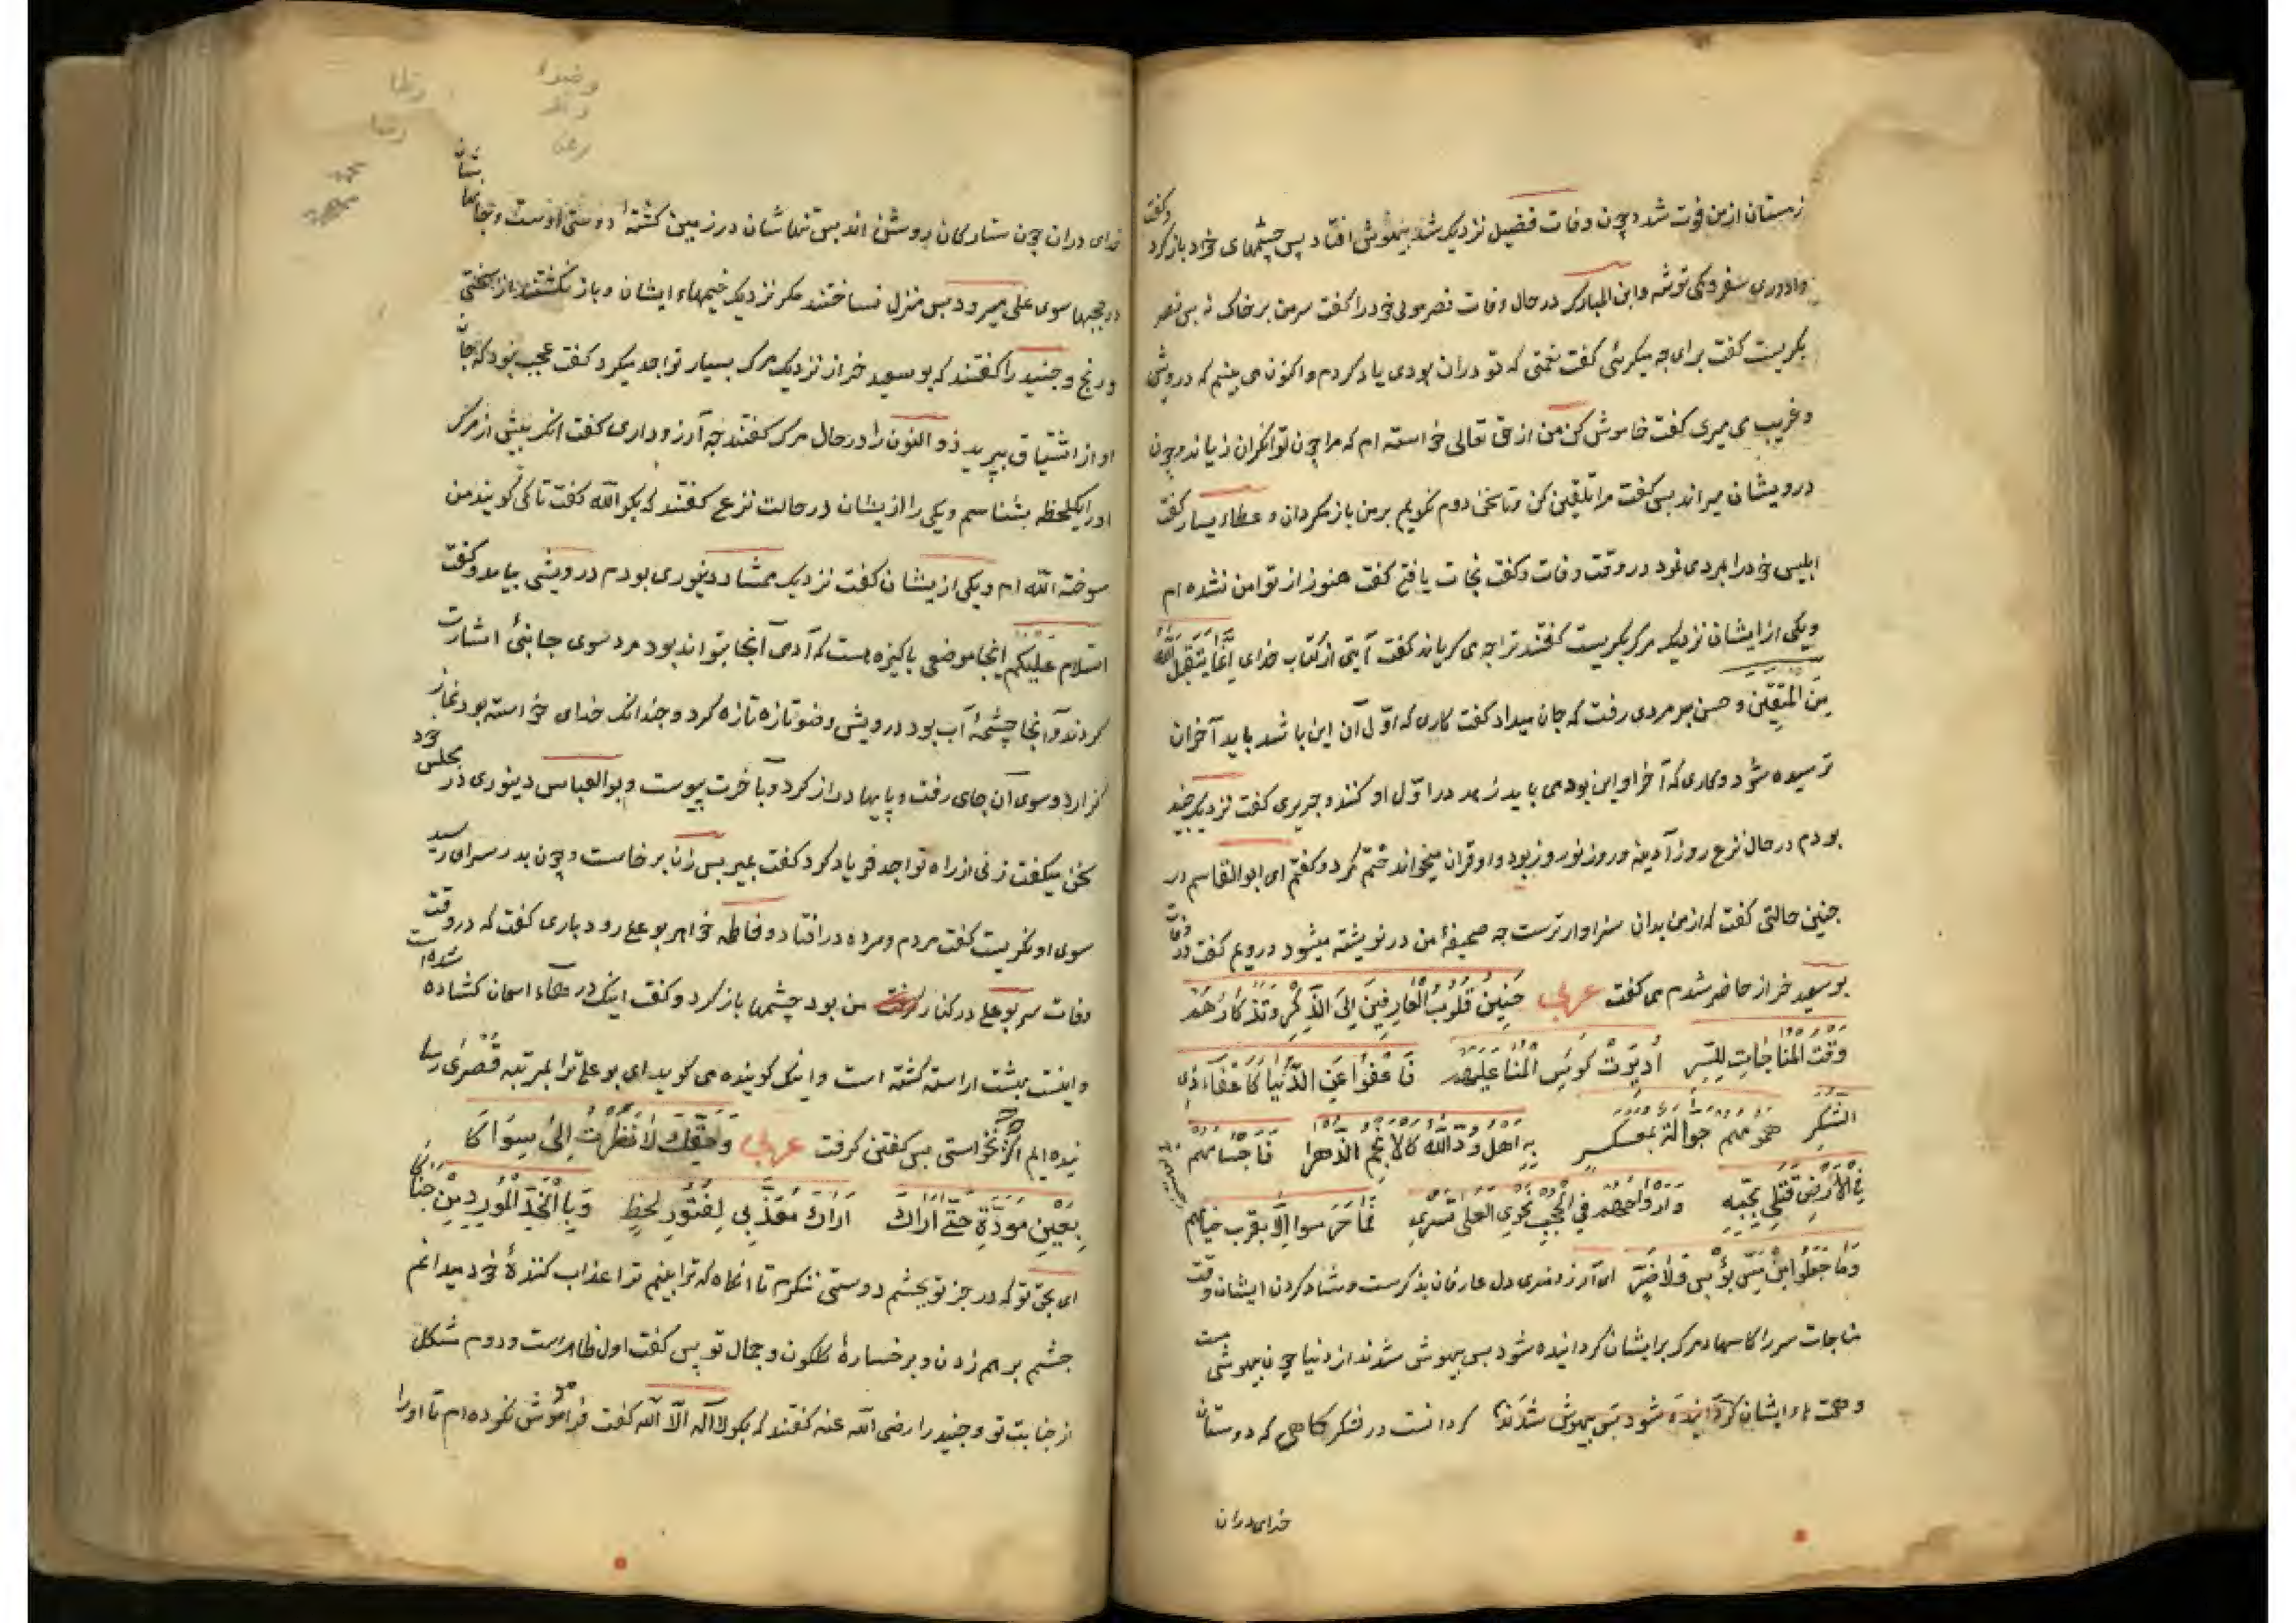 زمستان از من فوت شد و چون وفات فضیل نزدیک شد بیهوش افتاد پس چشمهای خود باز کرد وگفت
وا دوری سفر و کمی توشه و ابن المبارک در حال وفات نصر مولی خود را کفت سر من بر خاک نه بس نصر
بکریست کفت برای چه میکریئی کفت نعمتی که تو دران بودی یاد کردم و اکنون می بینم که درویش
و غریب می میری کفت خاموش کن من از حق تعالی خواسته ام که مرا چون توانکران زیاند و چون
درویشان میراند بس کفت مرا تلقین کن و تا سخن دوم نکویم بر من باز مکردان و عطاء یسار کفت
ابلیس خود را بمردی نمود در وقت وفات و کفت نجات یافتی کفت هنوز از تو امن نشده ام
ویکی از ایشان نزدیک مرک بکریست کفتند ترا چه می کریاند کفت آیتی از کتاب خدای اِنَّمَا یَتَقَبَّلُ اللّٰه
مِنَ المُتَّقِین و حسن بر مردی رفت که جان میداد کفت کاری که اوّل آن این باشد باید آخر ان
ترسیده شود و کاری که آخر او این بود می باید زهد در اوّل او کنند و جریری کفت نزدیک جنید
بودم در حال نزع روز آدینه و روز نوروز بود و او قران میخواند ختم کرد و کفتم ای ابوالقاسم در
چنین حالتی کفت که از من بدان سزاوارترست چه صحیفهٔ من درنوشته میشود و رویم کفت در وفات
بوسعید خراز حاضر شدم می کفت عربی حَنِینُ قُلُوبُ العَارِفِینَ اِلیَ الذِّکْرِ وَتَذکَارُهُمْ
وَقْتَ المُنَاجَاتِ لِلسِّرِ اُدیرَتْ کُوسُ المُنَا عَلَیهِم فَاَعْفَوا عَنِ الدُّنیَا کَاعْفَاءِ ذِی
السُّکْرِ هُمُومُهُم جَوَّالَةُ بِمَعسکَرٍ بِهِ اَهل وُدِّ اللّه کالانجُم الزُّهرا فَاَجسَامهُم
فِی الاَرْضِ قَتْلَی بِحُبّهِ وَاَرْوَاحُهُم فی الحُجبِ نَحوِ العُلَی تَسرِی فَمَا عَرَسوا اِلَّا بِقُربِ خیامهم
وَمَا عَرَّجُوا عَن مَسِّ بُؤسٍ وَلَا ضُرٍّ ای آرزومندی دل عارفان بذکرست و شاد کردن ایشان وقت
مناجات سر را کاسهاء مرک بر ایشان کردانیده شود بس بیهوش شدند از دنیا چون بیهوشی مست
کردانست در لشکر کاهی که دوستان
خدای دران
خدای دران چون ستارکان روشن اند بس تنهاشان در زمین کشتهٔ دوستی اوست وجانهاشان
در حجبها سوی علی میرود بس منزل نساختند مکر نزدیک خیمهاء ایشان و باز نکشتند از سختی
و رنج و جنید را کفتند که بوسعید خراز نزدیک مرک بسیار تواجد میکرد کفت عجب نبود که جان
او از اشتیاق بپرید ذوالنون را در حال مرک کفتند چه آرزو داری کفت انکه پیش از مرک
اورا یکلحظه بشناسم ویکی را ازیشان در حالت نزع کفتند که بکو اللّه کفت تا کی کویند من
سوخته اللّه ام ویکی ازیشان کفت نزدیک ممشاد دینوری بودم درویشی بیامد و کفت
السلام علیکم اینجا موضعی باکیزه هست که آدمی آنجا بتواند بود مرد سوی جانبی اشارت
کردند و آنجا چشمهٔ آب بود درویش وضو تازه تازه کرد و چندانک خدای خواسته بود نماز
کزارد و سوی آن جای رفت و پایها دراز کرد و بآخرت پیوست و بوالعباس دینوری در مجلس خود
سخن میکفت زنی از راه تواجد فریاد کرد کفت بمیر بس زن برخاست و چون بدر سرای رسید
سوی او نکریست کفت مردم و مرده در افتاد و فاطمه خواهر بوعلی رودباری کفت که در وقت
وفات سر بوعلی در کنار من بود چشمها باز کرد و کفت اینک درهاء اسمان کشاده شده است
و اینست بهشت اراسته کشته است و اینک کوینده می کوید ای بوعلی ترا بمرتبه قُصْوَی رسا
نیده ایم اکرچه نخواستی بس کفتن کرفت عربی وَحَقِّکَ لَا نَظَرْتُ اِلیٰ سِوَاکَا
بِعَینِ مَوَدَّةٍ حَتّیٰ اَرَاکَ اَرَاکَ مُعَذِّبِی بِفُتُورِ لَحظٍ وَبِالْخَدِّ المُوَرَّدِ مِنْ جَنَاکَا
ای بحق تو که در جز تو بچشم دوستی ننکرم تا انکاه که ترا بینم ترا عذاب کنندهٔ خود میدانم
چشم بر هم زدن و بر خسارهٔ کلکون و جمال تو پس کفت اول ظاهرست و دوم مشکل
از جنایت تو و جنید را رضی اللّه عنه کفتند که بکو لا اله الّا اللّه کفت فراموش نکرده ام تا اورا